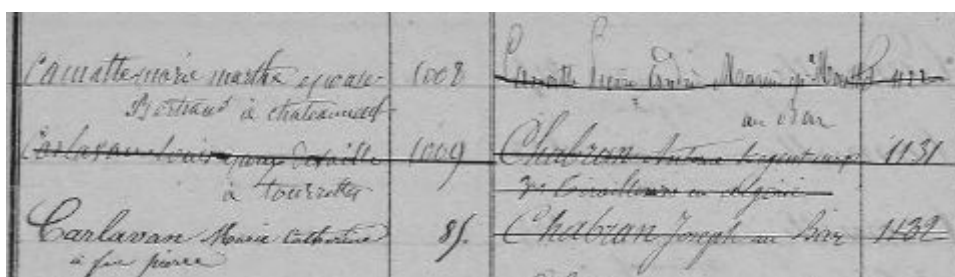 Camatte marie marthe epouse 1008
Bertrand à chateauneuf
Carlavan Louise epouse 1009
à tourrettes
Carlavan Marie Catherine 85.
à feu pierre
Camatte Pierre André Marin 1122
au Bar
Chabran Antoine Sergent 1131
3e Tirailleurs en algérie
Chabran Joseph au Bar 1132